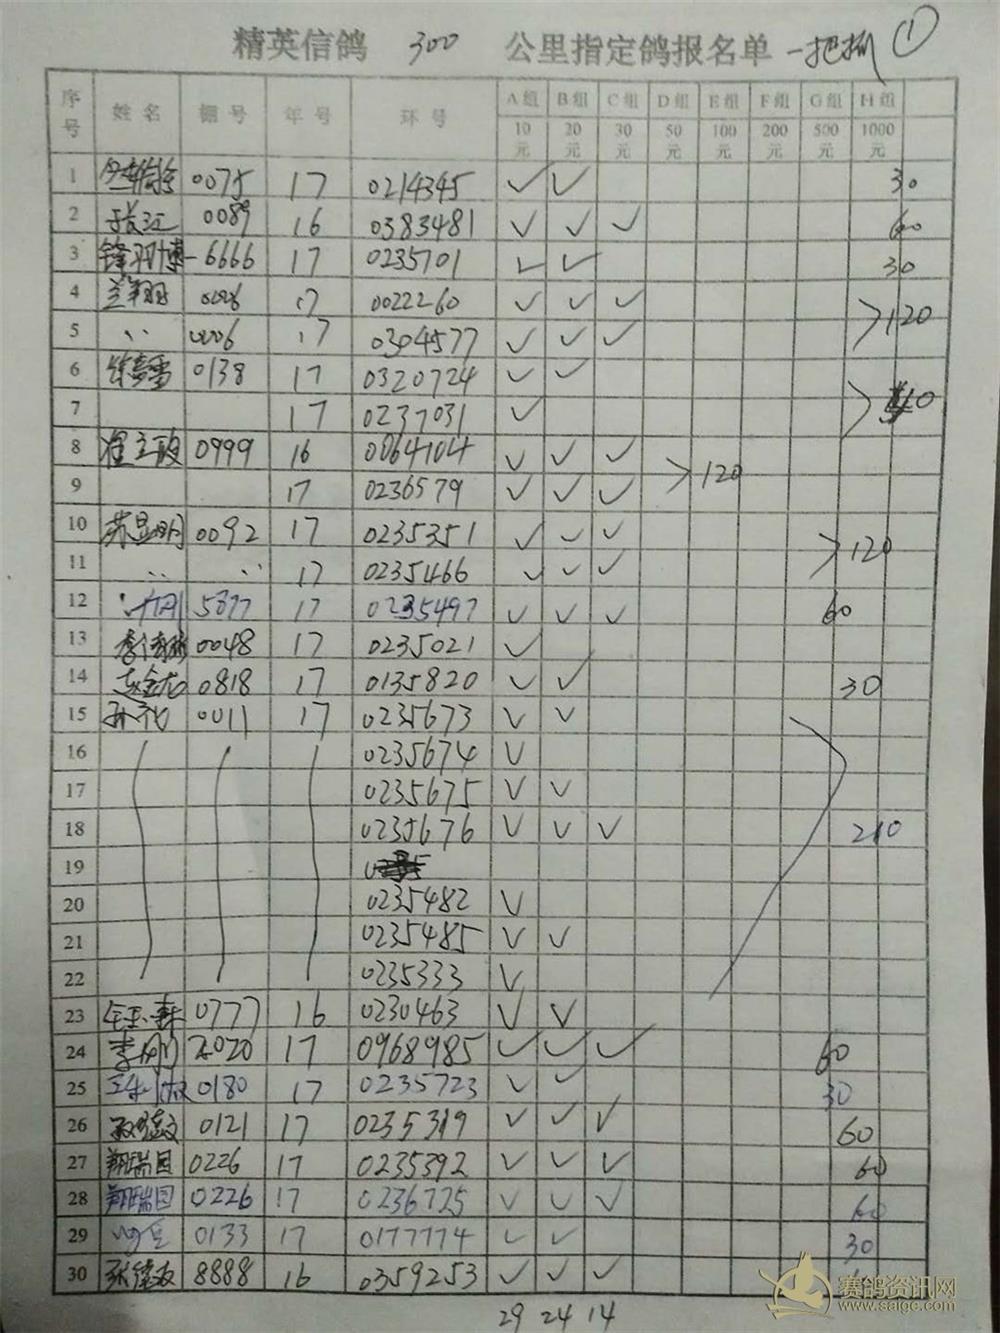 精英信鸽 300 公里指定鸽报名单 一把抓 ①
序号 姓名 棚号 年号 环号 A组 B组 C组 D组 E组 F组 G组 H组
10元 20元 30元 50元 100元 200元 500元 1000元
1 0075 17 0214345 ✓ ✓ 30
2 张江 0089 16 0383481 ✓ ✓ ✓ 60
3 锋羽博 6666 17 0235701 ✓ ✓ 30
4 兰翔 0006 17 0022260 ✓ ✓ ✓ >120
5 〃 0006 17 0304577 ✓ ✓ ✓
6 0138 17 0320724 ✓ ✓
7 17 0237031 ✓
8 崔立政 0999 16 0064104 ✓ ✓ ✓ >120
9 17 0236579 ✓ ✓ ✓
10 苏显明 0092 17 0235351 ✓ ✓ ✓ >120
11 〃 〃 17 0235466 ✓ ✓ ✓
12 5377 17 0235497 ✓ ✓ ✓ 60
13 0048 17 0235021 ✓
14 赵金龙 0818 17 0135820 ✓ ✓ 30
15 孙礼 0011 17 0235673 ✓ ✓
16 0235674 ✓
17 0235675 ✓ ✓
18 0235676 ✓ ✓ ✓ 210
19
20 0235482 ✓
21 0235485 ✓ ✓
22 0235333 ✓
23 0777 16 0230463 ✓ ✓
24 李刚 2020 17 0968985 ✓ ✓ ✓ 60
25 0180 17 0235723 ✓ ✓ 30
26 0121 17 0235319 ✓ ✓ ✓ 60
27 翔瑞园 0226 17 0235392 ✓ ✓ ✓ 60
28 翔瑞园 0226 17 0236725 ✓ ✓ ✓ 60
29 0133 17 0177774 ✓ ✓ 30
30 8888 16 0359253 ✓ ✓ ✓
29 24 14
赛鸽资讯网
www.saigc.com